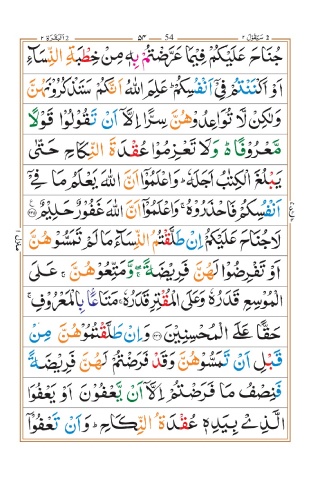 سیقول ۲ 54 ۵۴ البقرة ۲
جُنَاحَ عَلَيْكُمْ فِيْمَا عَرَّضْتُمْ بِهٖ مِنْ خِطْبَةِ النِّسَآءِ
اَوْ اَكْنَنْتُمْ فِىْٓ اَنْفُسِكُمْ ؕ عَلِمَ اللّٰهُ اَنَّكُمْ سَتَذْكُرُوْنَهُنَّ
وَلٰكِنْ لَّا تُوَاعِدُوْهُنَّ سِرًّا اِلَّاۤ اَنْ تَقُوْلُوْا قَوْلًا
مَّعْرُوْفًا ؕ وَلَا تَعْزِمُوْا عُقْدَةَ النِّكَاحِ حَتّٰى
يَبْلُغَ الْكِتٰبُ اَجَلَهٗ ؕ وَاعْلَمُوْٓا اَنَّ اللّٰهَ يَعْلَمُ مَا فِىْٓ
اَنْفُسِكُمْ فَاحْذَرُوْهُ ۚ وَاعْلَمُوْٓا اَنَّ اللّٰهَ غَفُوْرٌ حَلِيْمٌ ۝۲۳۵
لَا جُنَاحَ عَلَيْكُمْ اِنْ طَلَّقْتُمُ النِّسَآءَ مَا لَمْ تَمَسُّوْهُنَّ
اَوْ تَفْرِضُوْا لَهُنَّ فَرِيْضَةً ۖۚ وَّمَتِّعُوْهُنَّ ۚ عَلَى
الْمُوْسِعِ قَدَرُهٗ وَعَلَى الْمُقْتِرِ قَدَرُهٗ ۚ مَتَاعًا ۢ بِالْمَعْرُوْفِ ۚ
حَقًّا عَلَى الْمُحْسِنِيْنَ ۝۲۳۶ وَاِنْ طَلَّقْتُمُوْهُنَّ مِنْ
قَبْلِ اَنْ تَمَسُّوْهُنَّ وَقَدْ فَرَضْتُمْ لَهُنَّ فَرِيْضَةً
فَنِصْفُ مَا فَرَضْتُمْ اِلَّاۤ اَنْ يَّعْفُوْنَ اَوْ يَعْفُوَا
الَّذِىْ بِيَدِهٖ عُقْدَةُ النِّكَاحِ ؕ وَاَنْ تَعْفُوْٓا